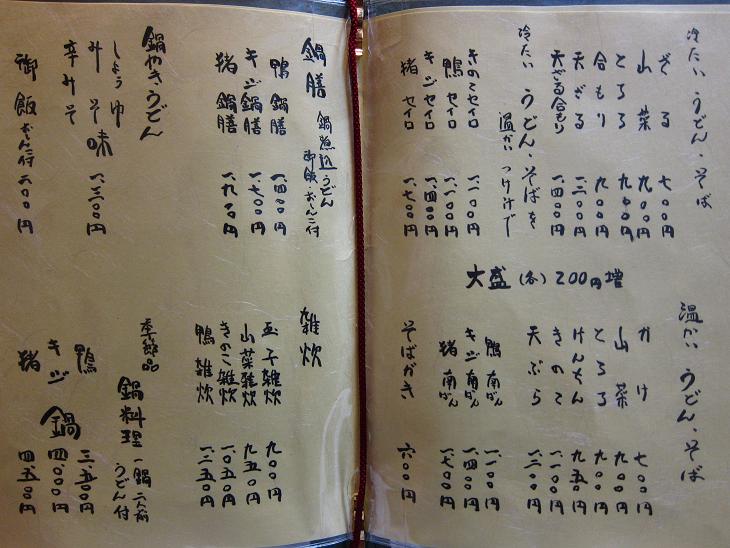 冷たい うどん・そば
ざる 七〇〇円
山菜 九〇〇円
とろろ 九〇〇円
合もり 九〇〇円
天ざる 一、三〇〇円
天ざる合もり 一、四〇〇円
冷たい うどん・そばを
温かい つけ汁で
きのこセイロ 一、一〇〇円
鴨セイロ 一、一〇〇円
キジセイロ 一、四〇〇円
猪セイロ 一、七〇〇円
大盛(各)200円増
温かい うどん・そば
かけ 七〇〇円
山菜 九〇〇円
とろろ 九〇〇円
けんちん 九五〇円
きのこ 一、一〇〇円
天ぷら 一、二〇〇円
鴨南ばん 一、一〇〇円
キジ南ばん 一、四〇〇円
猪南ばん 一、七〇〇円
そばがき 六〇〇円
鍋膳 鍋煮込うどん
御飯・おしんこ付
鴨鍋膳 一、四〇〇円
キジ鍋膳 一、七〇〇円
猪鍋膳 一、九〇〇円
鍋やきうどん
しょうゆ
みそ味 一、三〇〇円
辛みそ
御飯おしんこ付 二〇〇円
雑炊
玉子雑炊 九〇〇円
山菜雑炊 九五〇円
きのこ雑炊 一、〇五〇円
鴨雑炊 一、二五〇円
季節品
鍋料理 一鍋二人前
うどん付
鴨 三、五〇〇円
キジ 鍋 四、〇〇〇円
猪 四、五〇〇円